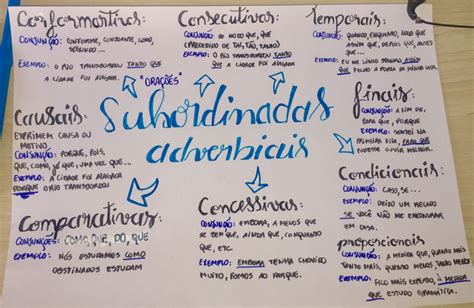 Conformativas:
CONJUNÇÃO: CONFORME, CONSOANTE, COMO,
SEGUNDO...
EXEMPLO: O RIO TRANSBORDOU TANTO QUE
A CIDADE FOI ALAGADA.
Consecutivas:
CONJUNÇÃO: DE MODO QUE, QUE
(PRECEDIDO DE TAL, TÃO, TANTO)
EXEMPLO: O RIO TRANSBORDOU TANTO
QUE A CIDADE FOI ALAGADA
Temporais:
CONJUNÇÃO: QUANDO, ENQUANTO, LOGO QUE
ASSIM QUE, DEPOIS QUE, ANTES
QUE...
EXEMPLO: EU ME LIVRO ASSIM
QUE
"ORAÇÕES"
Subordinadas
adverbiais
Causais:
EXPRIMEM CAUSA OU
MOTIVO.
CONJUNÇÃO: PORQUE, POIS,
QUE, COMO, JÁ QUE, UMA VEZ QUE...
EXEMPLO: A CIDADE FOI ALAGADA
PORQUE O RIO TRANSBORDOU
Finais:
CONJUNÇÃO: A FIM DE,
PARA QUE, PORQUE
EXEMPLO: SENTEI NA
PRIMEIRA FILA, PARA QUE
PUDESSE OUVIR MELHOR.
Condicionais:
CONJUNÇÃO: CASO, SE...
EXEMPLO: DEIXO UM RECADO
SE VOCÊ NÃO ME ENCONTRAR
EM CASA.
Comparativas:
CONJUNÇÕES: COMO, QUE, DO, QUE
EXEMPLO: NÓS ESTUDAMOS COMO
OBSTINADOS ESTUDAM
Concessivas:
CONJUNÇÃO: EMBORA, A MENOS QUE
SE BEM QUE, AINDA QUE, CONQUANTO
QUE, ETC.
EXEMPLO: EMBORA TENHA CHOVIDO
MUITO, FOMOS AO PARQUE.
proporcionais
CONJUNÇÃO: À MEDIDA QUE, QUANTO
TANTO MAIS, QUANTO MENOS, TANTO MENOR
EXEMPLO: FICO MAIS ESPERTO, À MEDIDA
QUE ESTUDO GRAMÁTICA.